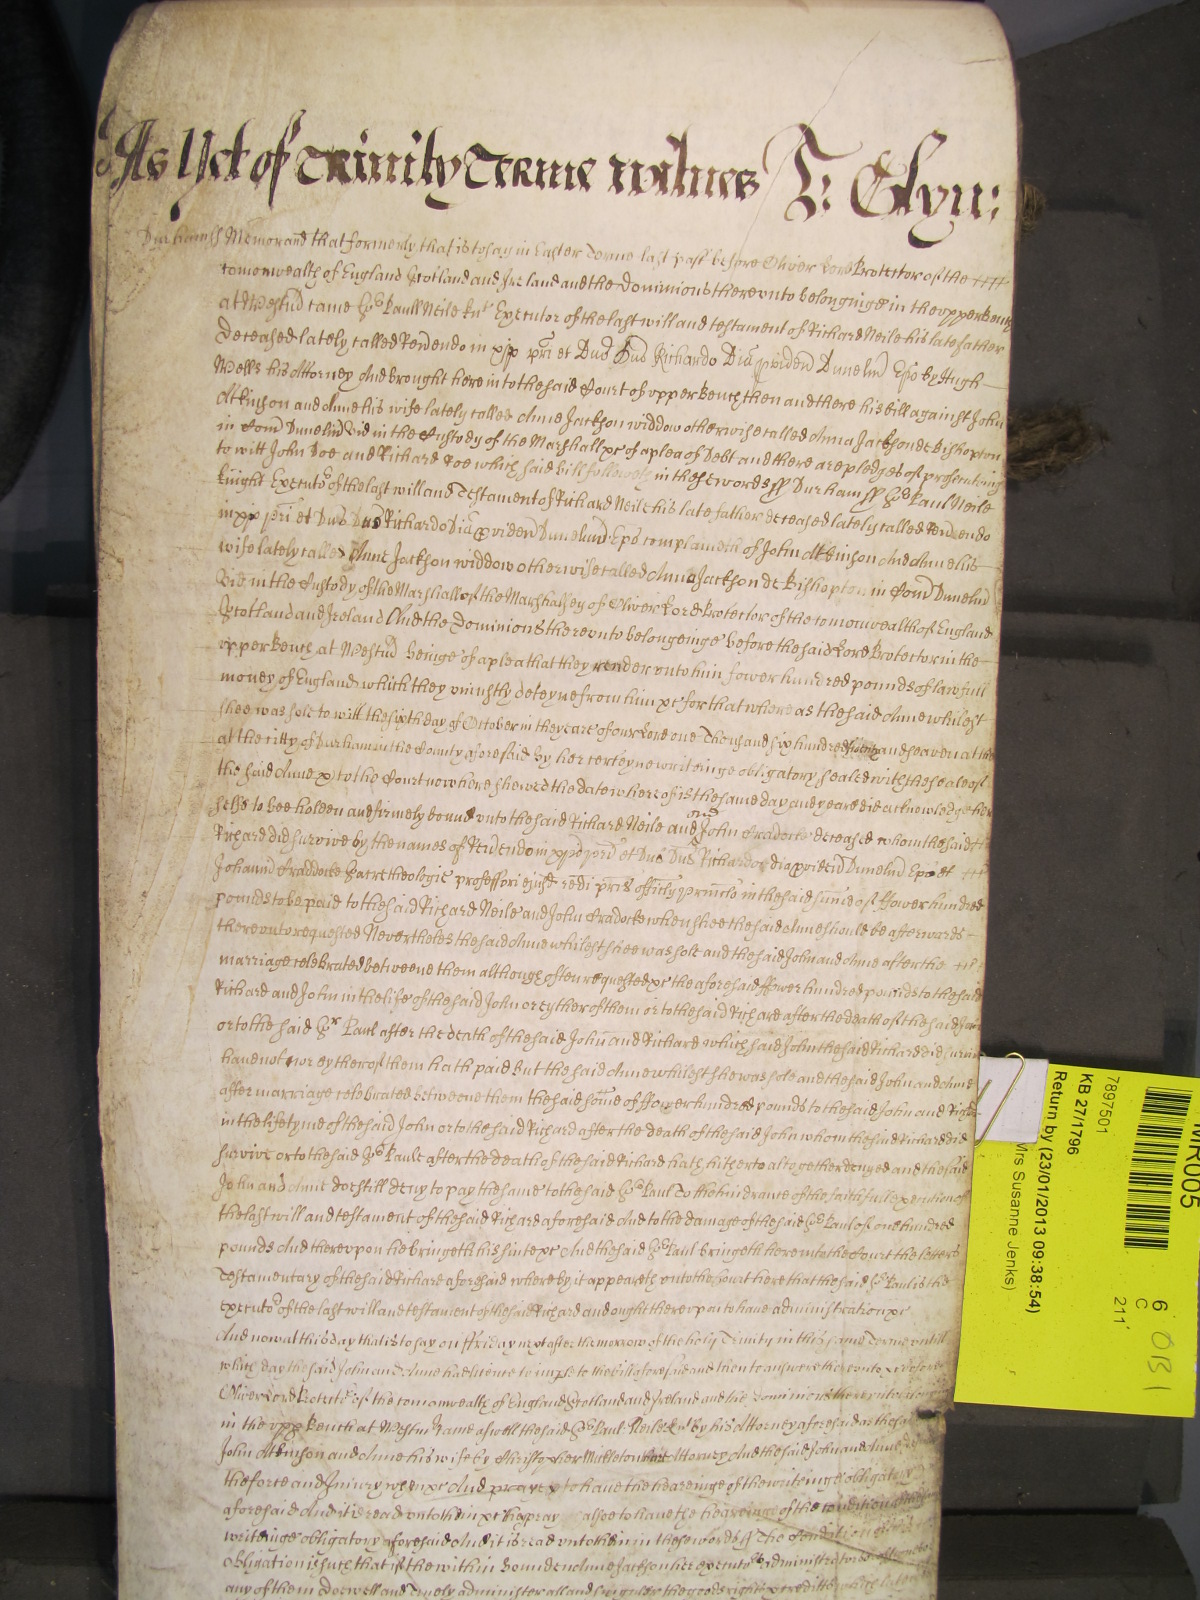 As Yet of Trinity Terme witnes J: Glyn:
Durham ss Memorand that formerly that is to say in Easter Terme last past before Oliver Lord Protector of the
comonwealth of England Scotland and Ireland and the dominions thereunto belonginge in the upper bench
at Westm came Sr Paull Neile knt Executor of the last will and testament of Richard Neile his late father
deceased lately called Reverendo in xpo pri et Dno Dno Richardo Dia providen Dunelm Epo by Hugh
Wells his Attorney And brought here into the said Court of upper bench then and there his bill against John
Atkinson and Anne his wife lately called Anne Jackson widdow otherwise called Anna Jackson de Bishopton
in Com Dunelm vid in the Custody of the Marshall &c of a plea of Debt and there are pledges of prosecuting
to witt John Doe and Richard Roe which said bill followeth in these words ss Durham ss Sr Paul Neile
knight Executor of the last will and Testament of Richard Neile his late father deceased lately called Reverendo
in xpo pri et Dno Dno Richardo Dia providen Dunelm Epo complaineth of John Atkinson and Anne his
wife lately called Anne Jackson widdow otherwise called Anna Jackson de Bishopton in Com Dunelm
vid in the Custody of the Marshall of the Marshalsey of Oliver Lord Protector of the comonwealth of England
Scotland and Ireland And the Dominions thereunto belongeinge before the said Lord Protector in the
upper bench at Westm beinge of a plea that they render unto him fower hundred pounds of lawfull
money of England which they uniustly deteyne from him &c for that whereas the said Anne whilest
shee was sole to witt the sixth day of October in the yeare of our Lord one Thousand six hundred and seaven at the
at the citty of Durham in the County aforesaid by her certeyne writeinge obligatory sealed with the seale of
the said Anne & to the Court now here shewed the date whereof is the same day and yeare did acknowledge her
selfe to bee holden and firmely bound unto the said Richard Neile and one John Cradocke deceased whom the said
Richard did survive by the names of Reverendo in xpo pri et Dno Dno Richardo dia providen Dunelm Epo et
Johanni Craddocke sacre theologie professori eiusd in the said sume of ffower hundred
pounds to be paid to the said Richard Neile and John Cradocke when shee the said Anne should be afterwards
thereunto requested Nevertheles the said Anne whilest shee was sole and the said John and Anne after the
marriage celebrated betweene them although often requested &c the aforesaid ffower hundred pounds to the said
Richard and John in the life of the said John or eyther of them or to the said Richard after the death of the said John
or to the said Sr Paul after the death of the said John and Richard which said John the said Richard did survive
have not nor eyther of them hath paid But the said Anne whilest she was sole and the said John and Anne
after marriage celebrated betweene them the said sume of ffower hundred pounds to the said John and Richard
in the lifetyme of the said John or to the said Richard after the death of the said John whom the said Richard did
survive or to the said Sr Paule after the death of the said Richard hath hitherto altogether denyed and the said
John and Anne doe still deny to pay the same to the said Sr Paul To the hindrance of the faithfull execution of
the last will and testament of the said Richard aforesaid And to the damage of the said Sr Paul of one hundred
pounds And thereupon he bringeth his suite &c And the said Sr Paul bringeth here into the Court the letters
Testamentary of the said Richard aforesaid whereby it appeareth unto the Court here that the said Sr Paul is the
executor of the last will and testament of the said Richard and ought thereupon to have administration &c
And now at this day that is to say on ffriday next after the morrow of the holy Trinity in this same Terme untill
which day the said John and Anne had licence to imple to the bill aforesaid and then to answere thereunto &c before
Oliver Lord Protector of the comonwealth of England Scotland and Ireland and the Dominions thereunto
in the upp bench at Westm came as well the said Sr Paul Neile knt by his Attorney aforesaid as the said
John Atkinson and Anne his wife by Christopher Mickleton their Attorney And the said John and Anne
the force and Iniury when &c And prayes to have the heareinge of the writeinge obligatory
aforesaid And it is read unto them &c they pray alsoe to have the heareinge of the condition of the
writeinge obligatory aforesaid And it is read unto them in these words ss The Condition of this
obligation is such that if the within bounden Anne Jackson her executors administrators
any of them doe well and Truely administer all and singuler the goods rights & creditts which lately
MR005
7897501
KB 27/1796
Return by (23/01/2013 09:38:54)
Mrs Susanne Jenks)
6
C
211